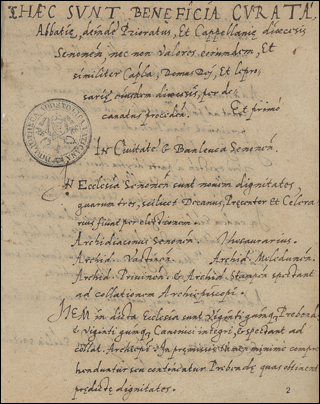 HÆC SVNT BENEFICIA CVRATA,
Abbatiæ, deindè Prioratus, Et Cappellaniæ diœcesis
Senonen, nec non Valores eorundem, Et
similiter Capla, Domus Dei, et lepro
sariæ eiusdem diœcesis, per de
canatus proceden. Et primò
In Ciuitate & Banleuca Senonen.
IN Ecclesia Senonen sunt nouem dignitates
quarum tres, scilicet Decanus, Precentor et Celera
rius fiunt per electionem.
Archidiaconus Senonen. Thesaurarius.
Archid. Archid. Meledunen.
Archid. Priuinen. & Archid. Stampen spectant
ad collationem Archiepiscopi.
ITEM in dicta Ecclesia sunt Viginti quinq, Prebendæ
et Viginti quinq, Canonici integri, Et spectant ad
collat. Archiepi. In præmissis tamen minimè compre
henduntur seu continentur Prebendæ quas obtinent
predictæ dignitates.
2